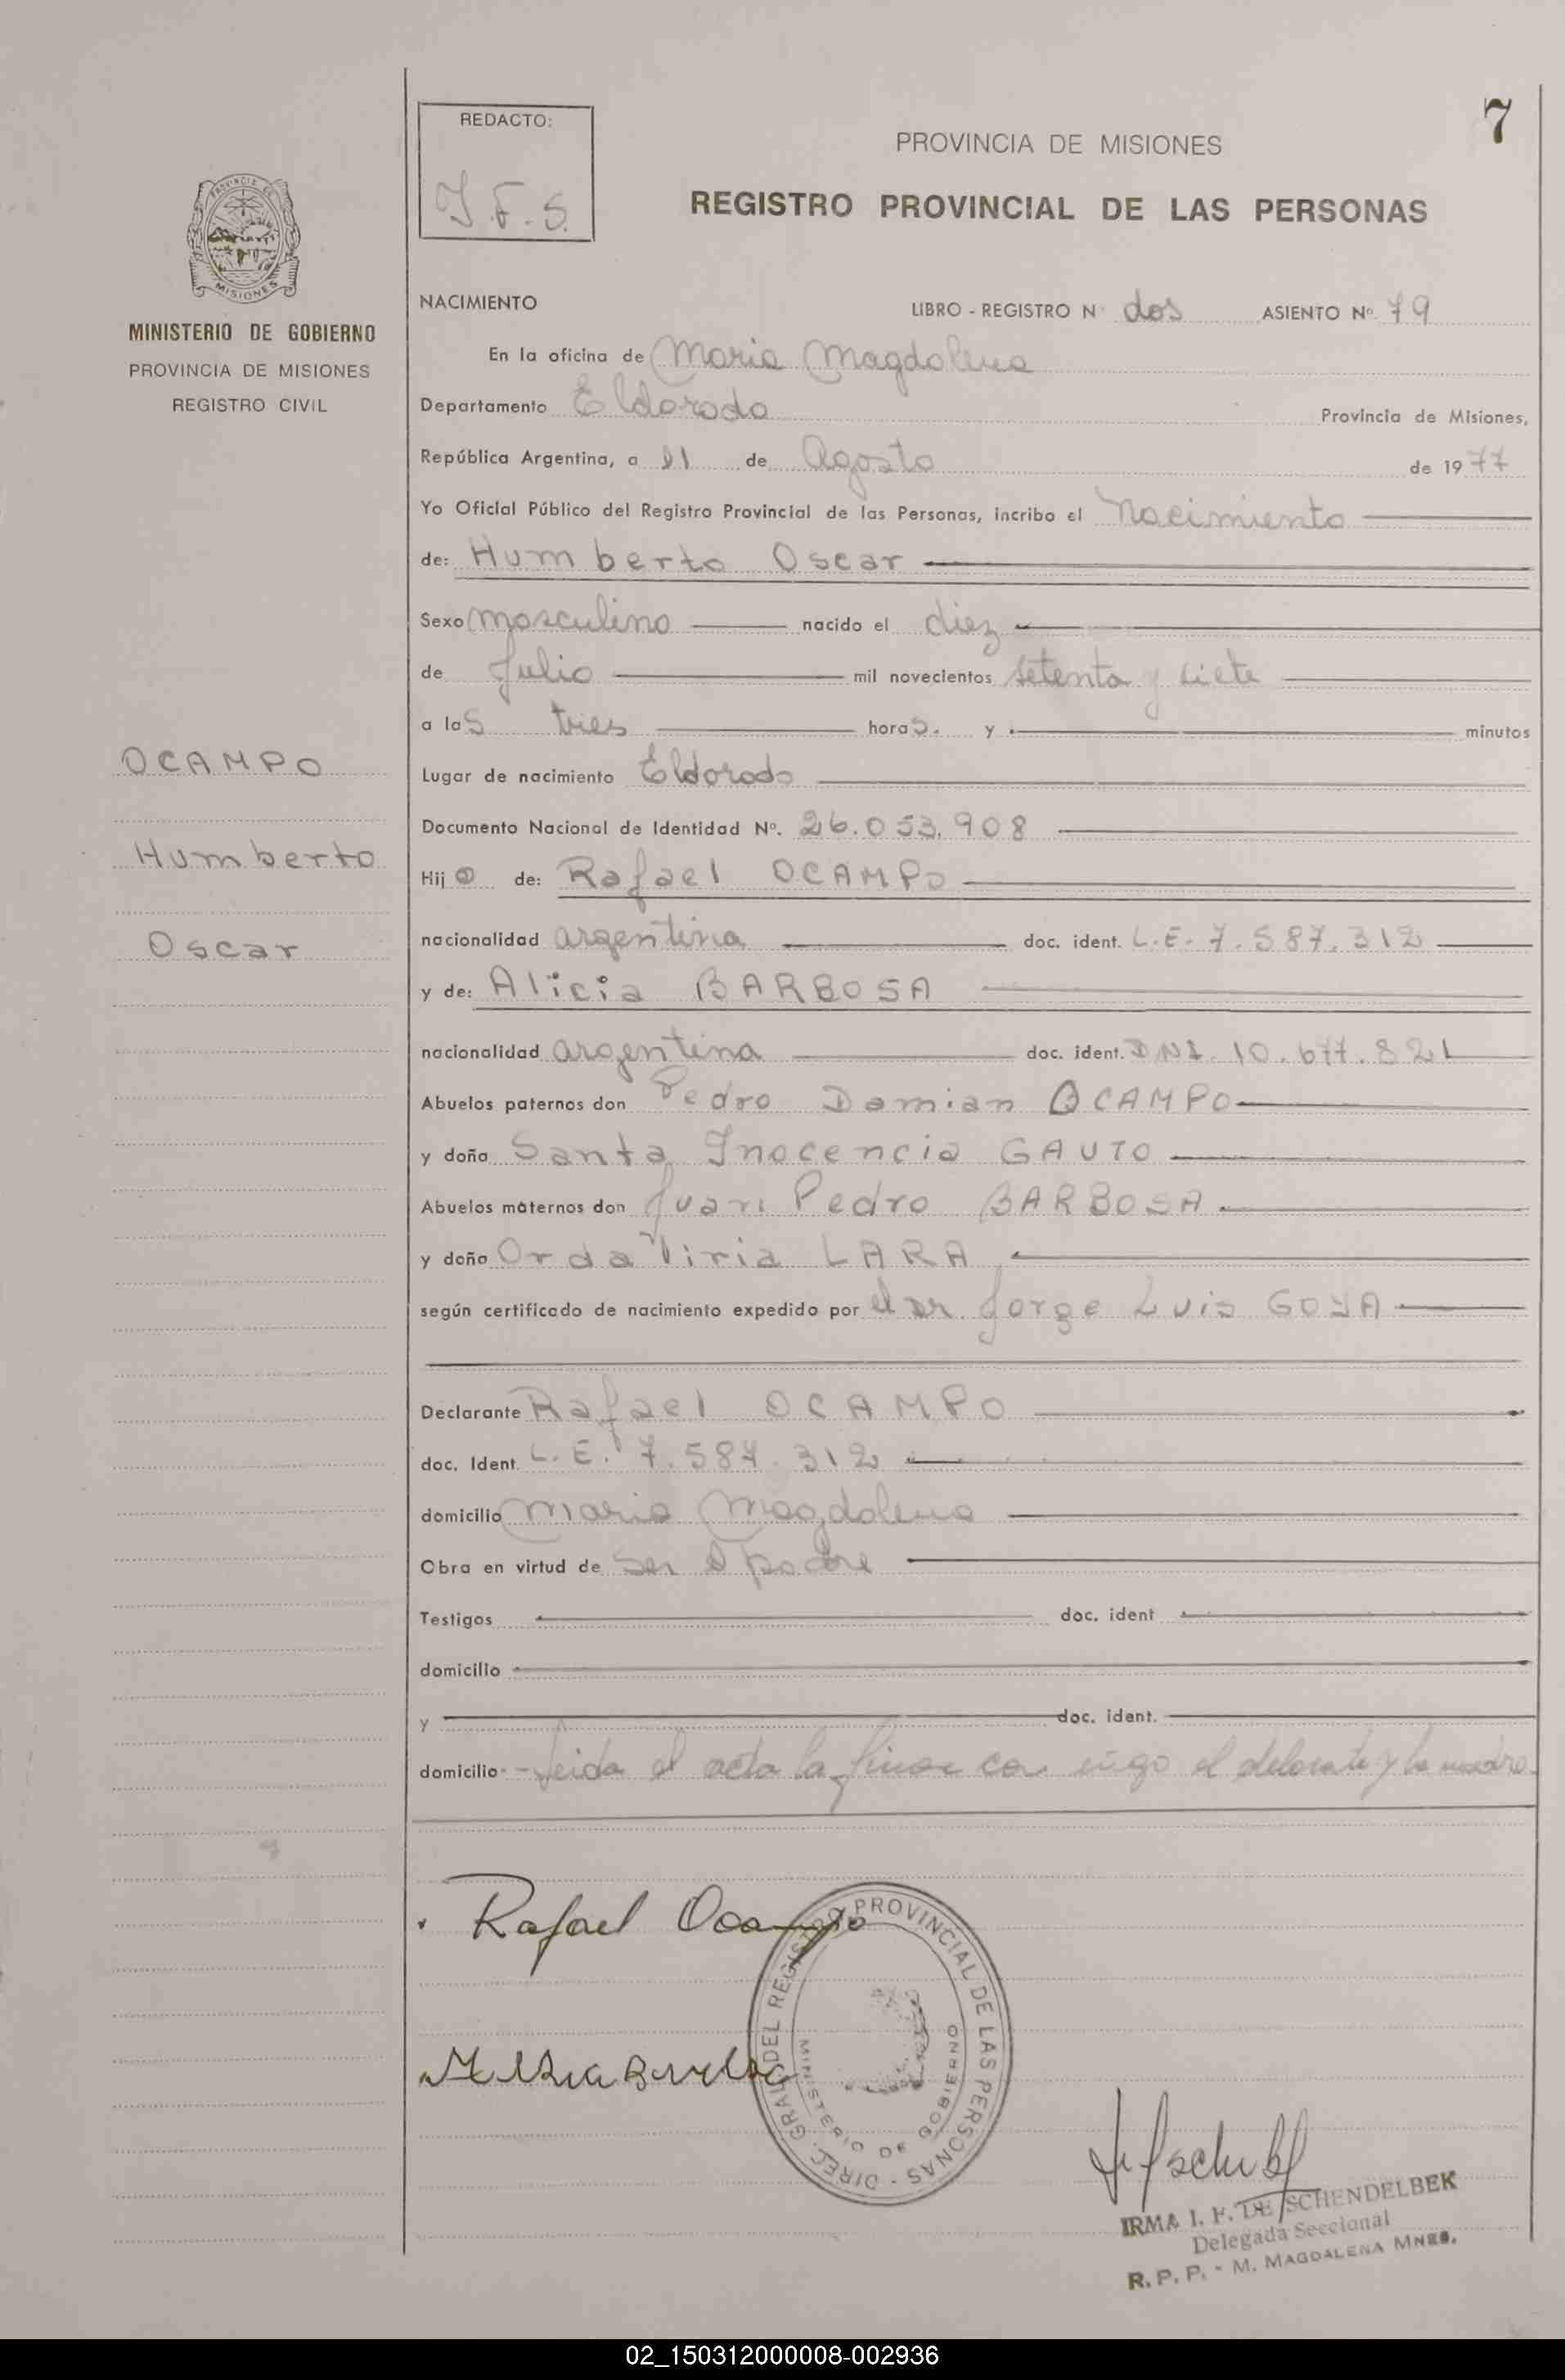 7
REDACTO:
J.F.S.
PROVINCIA DE MISIONES
REGISTRO PROVINCIAL DE LAS PERSONAS
PROVINCIA DE
MISIONES
MINISTERIO DE GOBIERNO
PROVINCIA DE MISIONES
REGISTRO CIVIL
OCAMPO
Humberto
Oscar
NACIMIENTO LIBRO - REGISTRO N° dos ASIENTO Nº. 79
En la oficina de Maria Magdalena
Departamento Eldorado Provincia de Misiones,
República Argentina, a 11 de Agosto de 1977
Yo Oficial Público del Registro Provincial de las Personas, incribo el Nacimiento
de: Humberto Oscar
Sexo masculino nacido el diez
de Julio mil novecientos setenta y siete
a las tres horas. y minutos
Lugar de nacimiento Eldorado
Documento Nacional de Identidad Nº. 26.053.908
Hijo de: Rafael OCAMPO
nacionalidad argentina doc. ident. L.E. 7.587.312
y de: Alicia BARBOSA
nacionalidad argentina doc. ident. DNI. 10.677.821
Abuelos paternos don Pedro Damian OCAMPO
y doña Santa Inocencia GAUTO
Abuelos maternos don Juan Pedro BARBOSA
y doña LARA
según certificado de nacimiento expedido por el Dr. Jorge Luis GOYA
Declarante Rafael OCAMPO
doc. Ident. L.E. 7.587.312
domicilio Maria Magdalena
Obra en virtud de ser el padre
Testigos doc. ident
domicilio
y doc. ident.
domicilio - Leida el acta la firma con migo el delarante y la madre.
Rafael Ocampo
DIREC. GRAL. DEL REGISTRO PROVINCIAL DE LAS PERSONAS -
MINISTERIO DE GOBIERNO
IRMA I. F. DE SCHENDELBEK
Delegada Seccional
R. P. P. - M. MAGDALENA MNES.
02_150312000008-002936